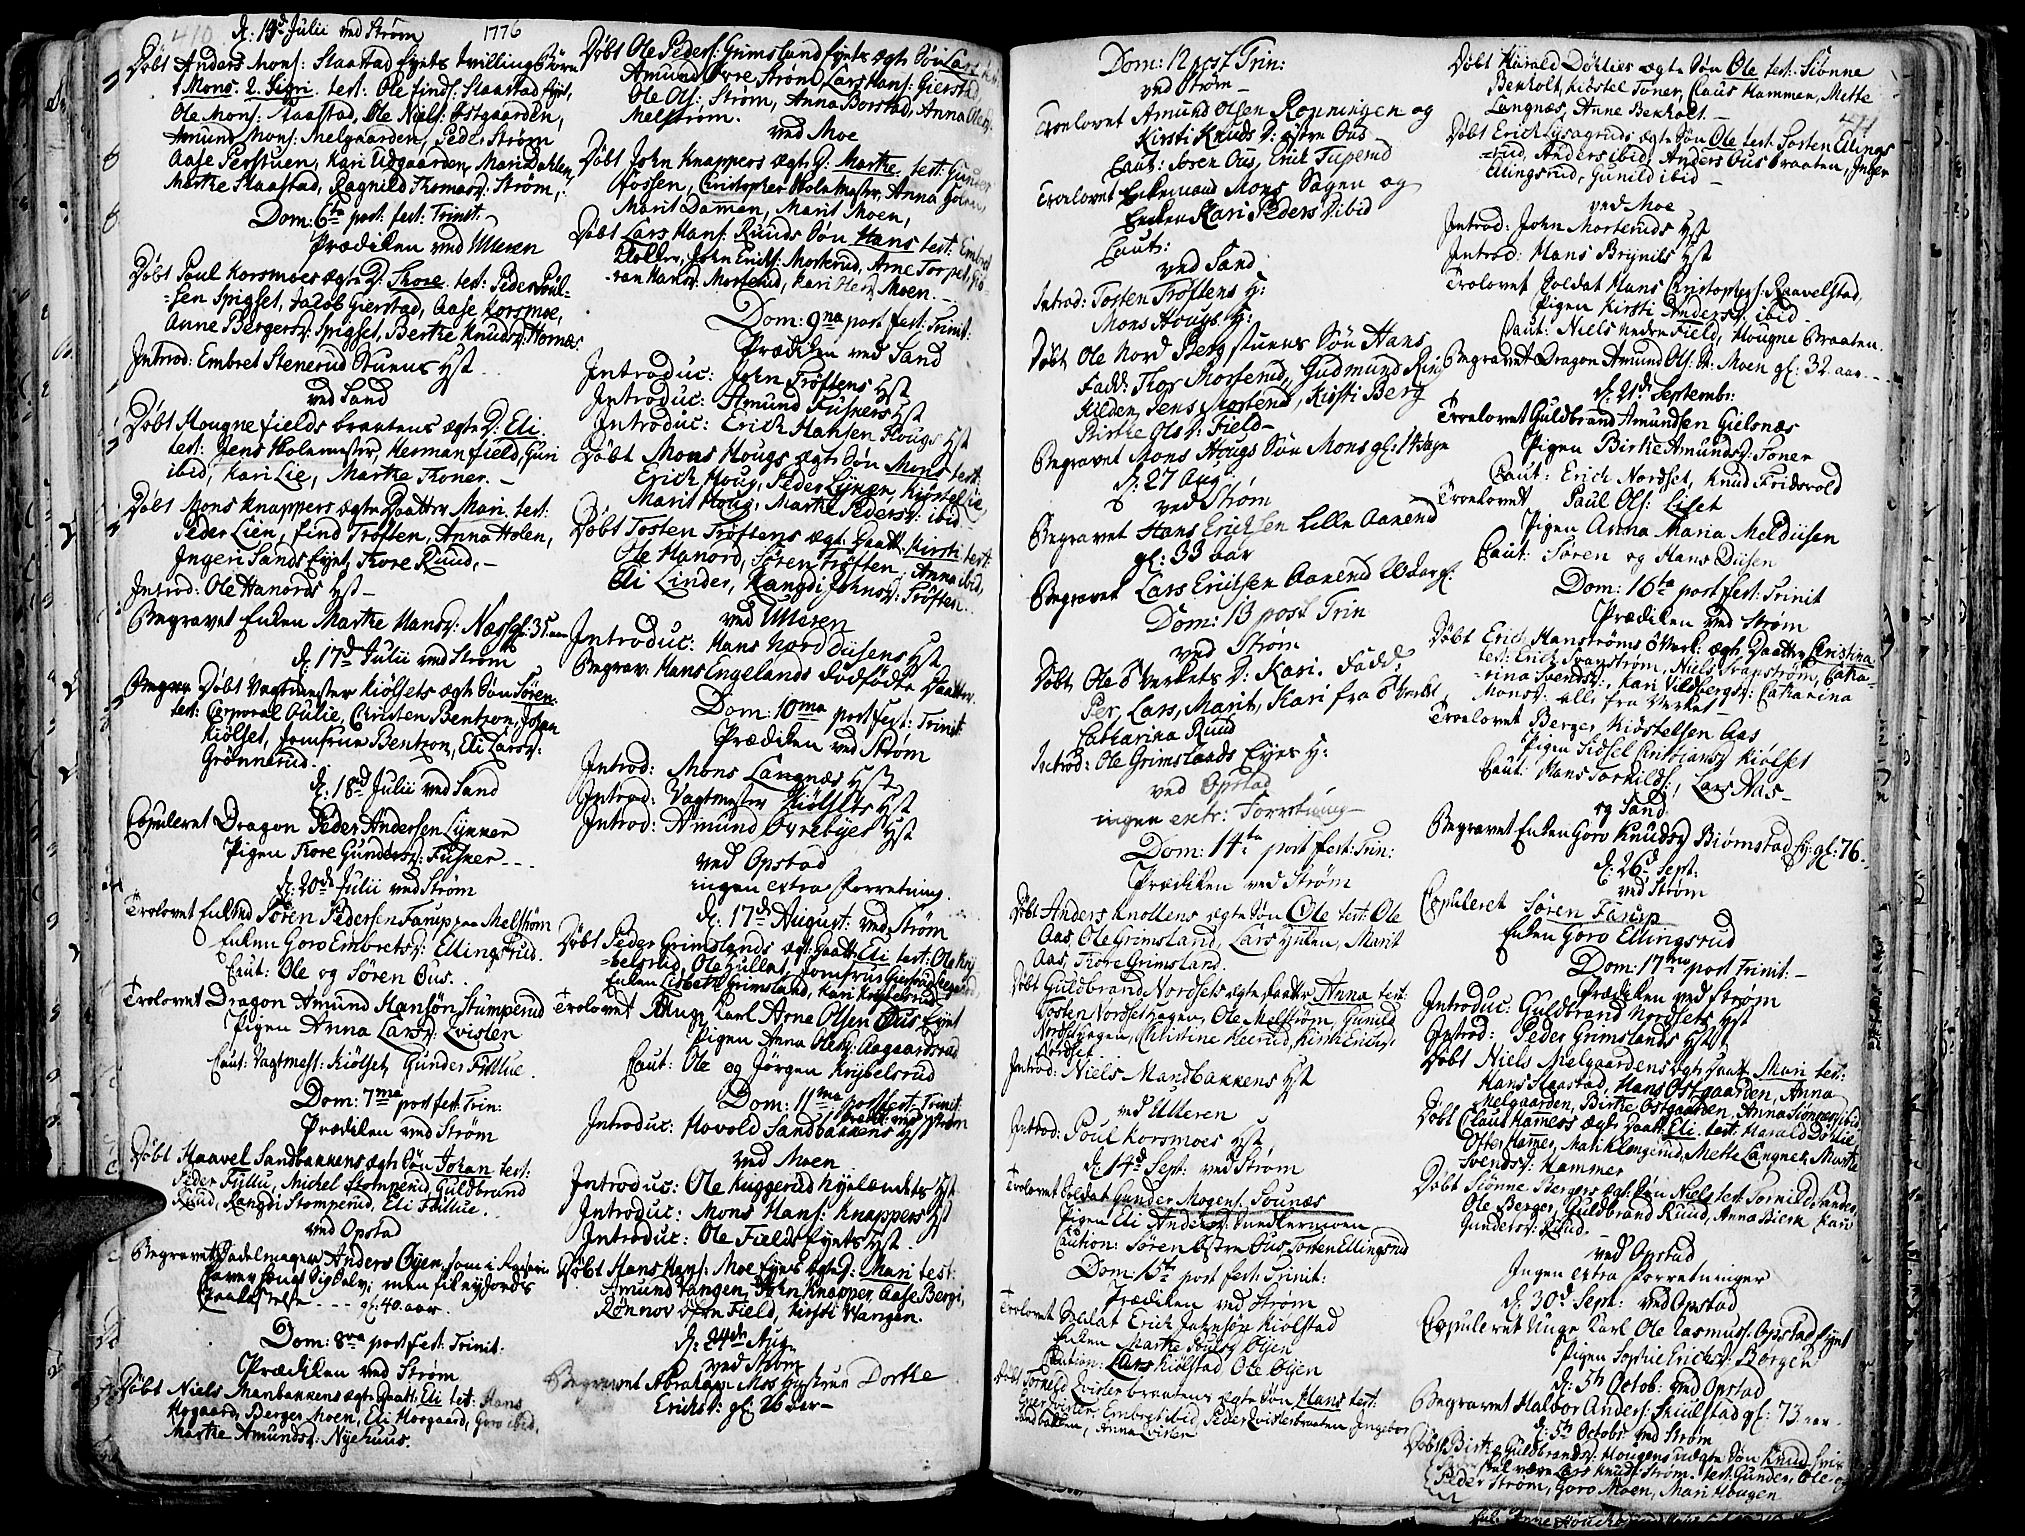 410
d: 14d Julii ved Strøm 1776
Døbt Anders Mons: Staastad Eyets tvillingbørn
1 Mons. 2. Sigri. test: Ole Finds: Staastad Eyet,
Ole Mons: Staastad, Ole Niels: Ostgaarden,
Amund Mons: Melgaarden, Peder Strøm
Aase Perstuen, Kari Udgaarden, Mari Dahlen,
Marthe Staastad, Ragnild Thomasd: Strøm,
Dom: 6ta post fest: Trinit.
Prædiken ved Ulleren
Døbt Paul Korsmoes ægte D: Thore. test: Peder Poul-
-sen Spigset, Jacob Gierstad, Aase Korsmoe,
Anne Bergersd: Spigset, Berthe Knudsd: Hornæs.
Introd: Embret Stenerud Stuens Hst
ved Sand
Døbt Hougne Fields braatens ægte D: Eli.
test: Jens Holmester, Herman Field, Guri
ibid, Kari Lie, Marthe Troner. –
Døbt Mons Knappers ægte Daatter Mari, test:
Peder Lien, Find Trøften, Anna Holen,
Ingeri Sands Eyet, Thore Ruud, –
Introd: Ole Hanords Hst –
Begravet Enken Marthe Hansd: Næss gl: 35 aar
d: 17d Julii ved Strøm
Døbt Vagtmester Kiølsets ægte Søn Søren
test: Corporal Aulie, Christen Bentzon, Johan
Kiølset, Jomfrue Bentzon, Eli Larsd:
Grønnerud.
d: 18d Julii ved Sand
Copuleret Dragon Peder Andersen Lynner
Pigen Thore Gundersd: Fusker
d: 20de Julii ved Strøm
Trolovet Enkmd Søren Pedersen Farup paa Melstrøm
Enken Goro Embretsd: Ellingsrud.
Caut: Ole og Søren Ous.
Trolovet Dragon Amund Hansøn Stumperud
Pigen Anna Larsd: Qvislen
Caut: Vagtmest: Kiølset, Gunder Fitlue
Dom: 7ma post fest: Trin:
Prædiken ved Strøm
Døbt Haavel Sandbakkens ægte Søn Johan test:
Peder Tyllu, Michel Stomperud, Guldbrand
Ruud, Rangdi Stomperud, Eli Tyllue.
ved Opstad
Begravet Sadelmager Anders Oyen, som i Raseri
haver hengt Sig Selv; men fik nyfords
gl: 40 aar.
Dom: 8va post fest: Trinit:
Prædiken ved Strøm
Døbt Niels Manbakkens ægte Daatt: Eli test: Hans
Horgaard, Berger Moen, Eli Horgaard, Goro ibid,
Marthe Amundsd: Nyehuus.
Døbt Ole Peders: Grimsland Eyets ægte Søn Lars
Amund Øvre Strøm, Lars Hans: Gierstad
Ole Ols: Strøm, Anna Borstad, Anna Olesd:
Melstrøm.
ved Moe
Døbt John Knappers ægte D: Marthe. test: Gunder
Fossen, Christopher Holmester, Anna Holen,
Marit Dammen, Marit Moen,
Døbt Lars Hans: Ruuds Søn Hans test: Embret
Holker, John Erichs: Morterud, Arne Torpet,
Hansd: Morterud, Kari Moen. –
Dom: 9na post fest: Trinit:
Prædiken ved Sand
Introduc: John Trøftens Hst
Introduc: Amund Fuskers Hst
Introduc: Erich Hansen Hougs Hst
Døbt Mons Hougs ægte Søn Mons test:
Erich Houg, Peder Lynner, Kiostel Lie,
Marit Houg, Marthe Pedersd: ibid
Døbt Tosten Trøftens ægte Daatt: Kirsti test:
Ole Hanord, Søren Trøften, Anna ibid,
Eli Linder, Rangdi Johnsd: Trøften.
ved Ulleren
Introduc: Hans Nord Diisens Hst
Begrav: Hans Engelands dødfødte Daatter
Dom: 10ma post fest: Trinit
Prædiken ved Strøm
Introd: Mons Langnæs Hst
Introd: Vagtmester Kiølsets Hst
Introd: Amund Ovrebyes Hst
ved Opstad
ingen extra Forretning.
d: 17de August: ved Strøm
Døbt Peder Grimslands ægt: Daatt: Eli test: Ole Kry-
-belsrud, Ole Hullet, Jomfrue Giertrud
Enken Lisbeth Grimsland, Kari Krybelsrud
Trolovet Unge Karl Arne Olsen Ous Eyet
Pigen Anna Olesd: Aagaardsrud
Caut: Ole og Jørgen Krybelsrud
Dom: 11ma post fest: Trinit:
Præd: ved Strøm
Introduc: Hovold Sandbakkens Hst
ved Moen
Introduc: Ole Kuggerud Nyelændets Hst
Introduc: Mons Hans: Knappers Hst
Introduc: Ole Fields Eyets Hst
Døbt Hans Hans: Moe Eyes ægte D: Mari test:
Amund Vangen, John Knapper, Aase Bergi,
Rønnov ofre Field, Kirsti Wangen.
d: 24de Aug:
ved Strøm
Begravet Abraham Moss Hustrue Dorthe
Erichsd: gl: 26 aar –
Dom: 12 post Trin:
ved Strøm –
Troelovet Amund Olsen Ronningen og
Kirsti Knuds D: østre Ous
Caut: Søren Ous, Erich Tuperud
Troelovet Enkemand Mons Sagen og
Enken Kari Peders D ibid
Caut:
ved Sand
Introd: Tosten Trøftens H:
Mons Hougs H:
Døbt Ole Nord Bergstuens Søn Hans
Fadd: Thor Morterud, Gudmund Ring
Kilden, Jens Morterud, Kirsti Berg
Birthe Ols D: Field –
Begravet Mons Hougs Søn Mons gl: 14 dage
d: 27 Aug
ved Strøm
Begravet Hans Erichsen Lille Aanerud
gl: 33 aar
Begravet Lars Erichsen Aanerud 20 aar gl:
Dom: 13 post Trin
ved Strøm
Døbt Ole Oo Verkets D: Kari. Fadd:
Per, Lars, Marit, Kari fra O Verket
Catharina Ruud
Introd: Ole Grimslands Eyes H:
ved Opstad
ingen extr: Forretning
Dom: 14ta post fest: Trin:
Prædiken ved Strøm
Døbt Anders Knollens ægte Søn Ole test: Ole
Aas, Ole Grimsland, Lars Hulen, Marit
Aas, Thore Grimsland.
Døbt Guldbrand Nordsets ægte Daatter Anna test:
Tosten Nordsethagen, Ole Melstrøm, Gunild
Nordsethagen, Christine Keerud, Kirsti Erichsd:
Nordset
Introd: Niels Mandbakkens Hst
ved Ulleren
Introd: Poul Korsmoes Hst
d: 14d Sept: ved Strøm
Trolovet Soldat Gunder Mogens: Sounæs
Pigen Eli Andersd: Sunckermoen
Caution: Søren østre Ous, Tosten Ellingsrud
Dom: 15ta post fest: Trinit:
Prædiken ved Strøm
Trolovet Soldat Erich Johnsøn Kiolstad
Enken Marthe Poulsd: Oyen
Caution: Lars Kiolstad, Ole Oyen
Døbt Torkild Qvislerbraatens ægte Søn Hans test:
Iver Qvisler, Embret ibid, Peder Qvislerbraaten, Ingebor
Sandbakken, Anna Qvisler
Døbt Harald Døhlies ægte Søn Ole test: Siønne
Benholt, Kiostel Toner, Claus Hammer, Mette
Langnæs, Anne Benholt. –
411
Døbt Erich Lysagruds ægte Søn Ole test: Tosten Ellings
-rud, Anders ibid, Anders Ous Braaten, Inger
Ellingsrud, Gunild ibid –
ved Moe
Introd: John Morteruds Hst
Introd: Hans Brynils Hst
Trolovet Soldat Hans Christophs: Raavelstad,
Pigen Kirsti Andersd: ibid
Caut: Niels Nedre Field, Hougne Braaten.
Begravet Dragon Amund Ols: N: Moen gl: 32 aar. – –
d: 21d Septembr:
Troelovet Guldbrand Amundsen Gielsnæs
Pigen Birthe Amundsd: Toner
Caut: Erich Nordset, Knud Fridsvold
Troelovet Paul Ols: Liset
Pigen Anna Maria Meldiisen
Caut: Søren og Hans Diisen
Dom: 16ta post fest: Trinit
Prædiken ved Strøm
Døbt Erich Hanstrøms O Verk: ægte Daatter Christina
test: Erich Svanstrøm, Niels Svanstrøm, Catha-
-rina Svendsd:, Kari Vildbergsd: Catharina
Monsd: alle fra Verket –
Troelovet Berger Kiostelsen Aas
Pigen Sidsel Christiansd Kiølset
Caut: Hans Torkilds:, Lars Aas –
og Sand
Begravet Enken Goro Knudsd Biørnstad Ey: gl: 76.
d: 26d Sept:
ved Strøm
Copuleret Søren Farup
Enken Goro Ellingsrud
Dom: 17ma post Trinit: –
Prædiken ved Strøm
Introduc: Guldbrand Nordsets Hst
Introd: Peder Grimslands Hst
Døbt Niels Melgaardens ægte Daatt: Mari test:
Hans Staastad, Hans Ostgaarden, Anna
Melgaarden, Birthe Ostgaarden, Anna Siønnesd ibid
Døbt Claus Hamers ægte Daatt: Eli. test: Harald Dohlie
Offer Hamer, Mari Klongerud, Mette Langnes, Marthe
Svendsd: Hammer
Døbt Siønne Bergers ægte Søn Niels test: Tormild Sander,
Ole Berger, Guldbrand Ruud, Anna Bierk, Kari
Gundersd: Ruud. –
ved Opstad
Ingen extra Forretninger
d: 30d Sept: ved Opstad
Copuleret Unge Karl Ole Rasmuss: Opstad Eyet
Pigen Sophie Erichsd: Borgen
d: 5th Octob: ved Opstad
Begravet Halvor Anders: Skiulstad gl: 73 aar –
d: 5th Octobr ved Strøm
Døbt Birthe Guldbrandsd: Hougens uægte Søn Knud
skal være Lars Knuds: Strøm. test: Gunder, Ole og
Peder Strøm, Goro Moen, Mari Hougen